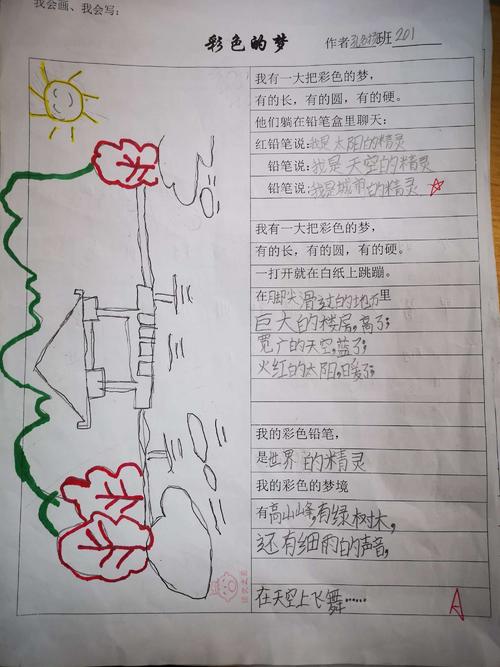 我会画、我会写:
彩色的梦
作者 班 201
我有一大把彩色的梦,
有的长,有的圆,有的硬。
他们躺在铅笔盒里聊天:
红铅笔说:我是太阳的精灵
铅笔说:我是天空的精灵
铅笔说:我是城市的精灵
我有一大把彩色的梦,
有的长,有的圆,有的硬。
一打开就在白纸上跳蹦。
在脚尖滑过的地方里
巨大的楼房,高了;
宽广的天空,蓝了;
火红的太阳,暖了;
我的彩色铅笔,
是世界的精灵
我的彩色的梦境
有高山山峰,有绿树木,
还有细雨的声音,
在天空上飞舞……
A